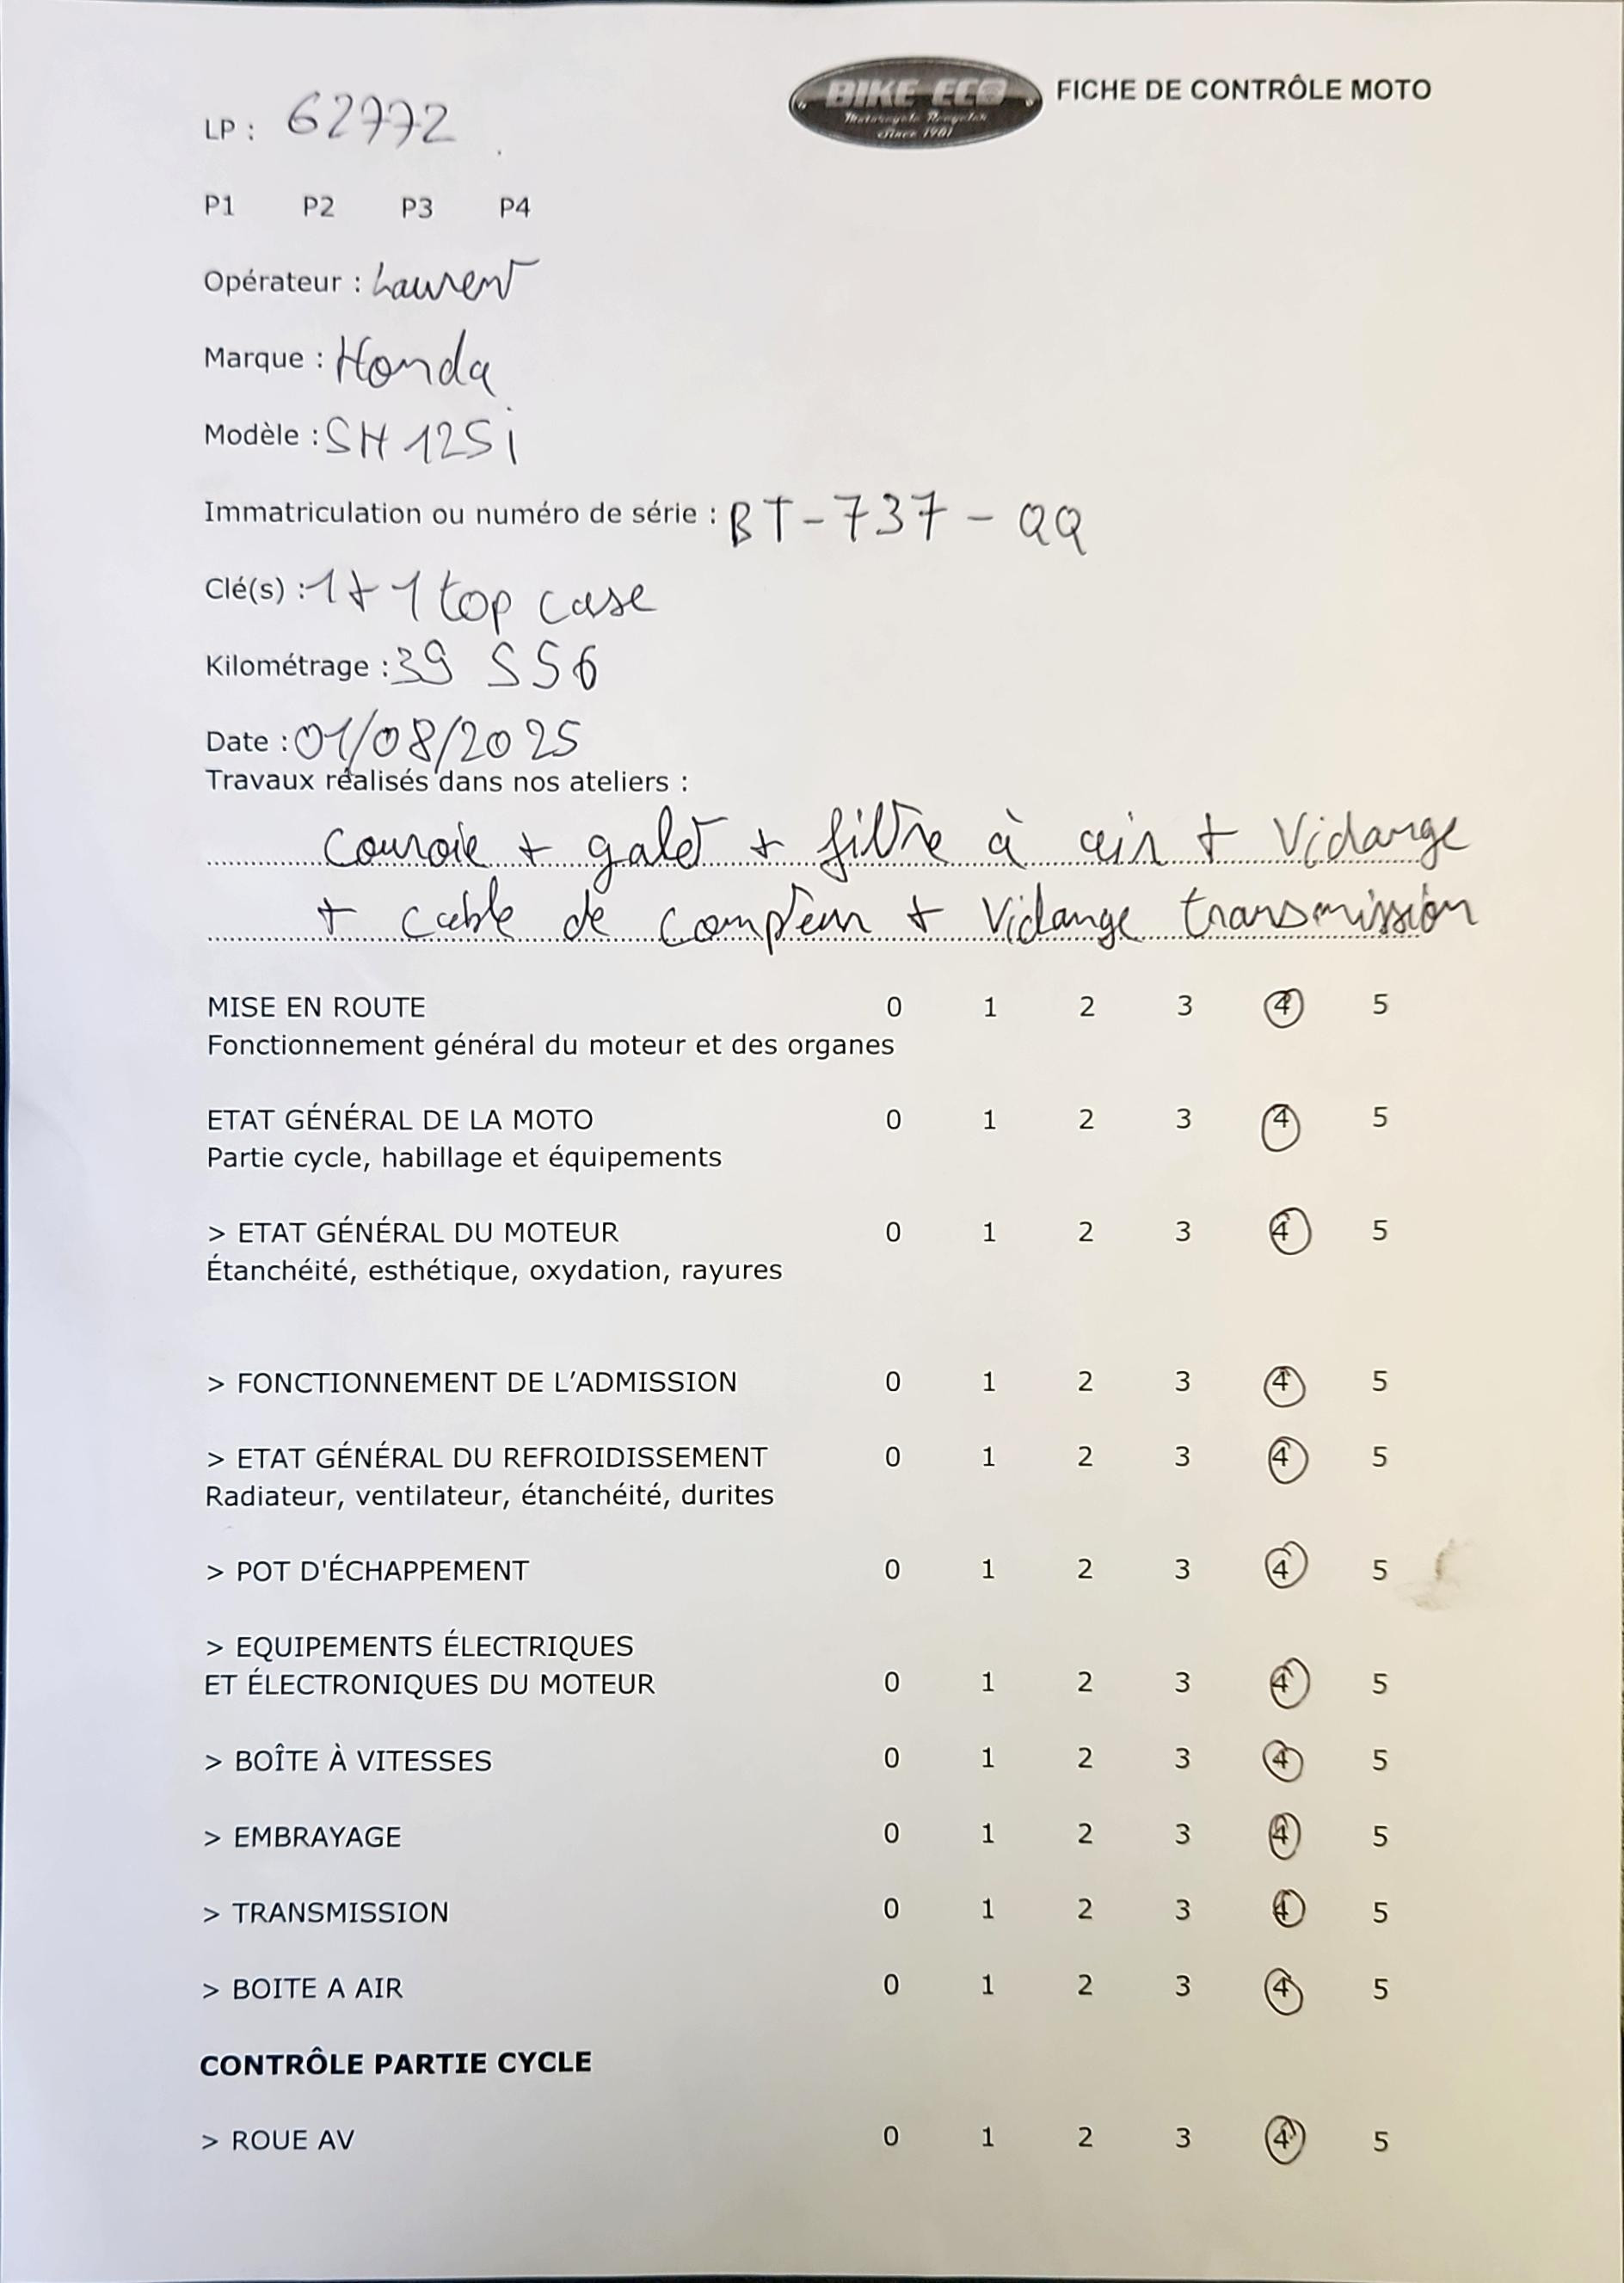 BIKE ECO
Motorcycle Recycler
Since 1981
FICHE DE CONTRÔLE MOTO
LP : 62772
P1 P2 P3 P4
Opérateur : Laurent
Marque : Honda
Modèle : SH 125i
Immatriculation ou numéro de série : BT-737-QQ
Clé(s) : 1 + 1 top case
Kilométrage : 39 556
Date : 01/08/2025
Travaux réalisés dans nos ateliers :
Courroie + galet + filtre à air + Vidange
+ cable de compteur + Vidange transmission
MISE EN ROUTE 0 1 2 3 4 5
Fonctionnement général du moteur et des organes
ETAT GÉNÉRAL DE LA MOTO 0 1 2 3 4 5
Partie cycle, habillage et équipements
> ETAT GÉNÉRAL DU MOTEUR 0 1 2 3 4 5
Étanchéité, esthétique, oxydation, rayures
> FONCTIONNEMENT DE L'ADMISSION 0 1 2 3 4 5
> ETAT GÉNÉRAL DU REFROIDISSEMENT 0 1 2 3 4 5
Radiateur, ventilateur, étanchéité, durites
> POT D'ÉCHAPPEMENT 0 1 2 3 4 5
> EQUIPEMENTS ÉLECTRIQUES
ET ÉLECTRONIQUES DU MOTEUR 0 1 2 3 4 5
> BOÎTE À VITESSES 0 1 2 3 4 5
> EMBRAYAGE 0 1 2 3 4 5
> TRANSMISSION 0 1 2 3 4 5
> BOITE A AIR 0 1 2 3 4 5
CONTRÔLE PARTIE CYCLE
> ROUE AV 0 1 2 3 4 5